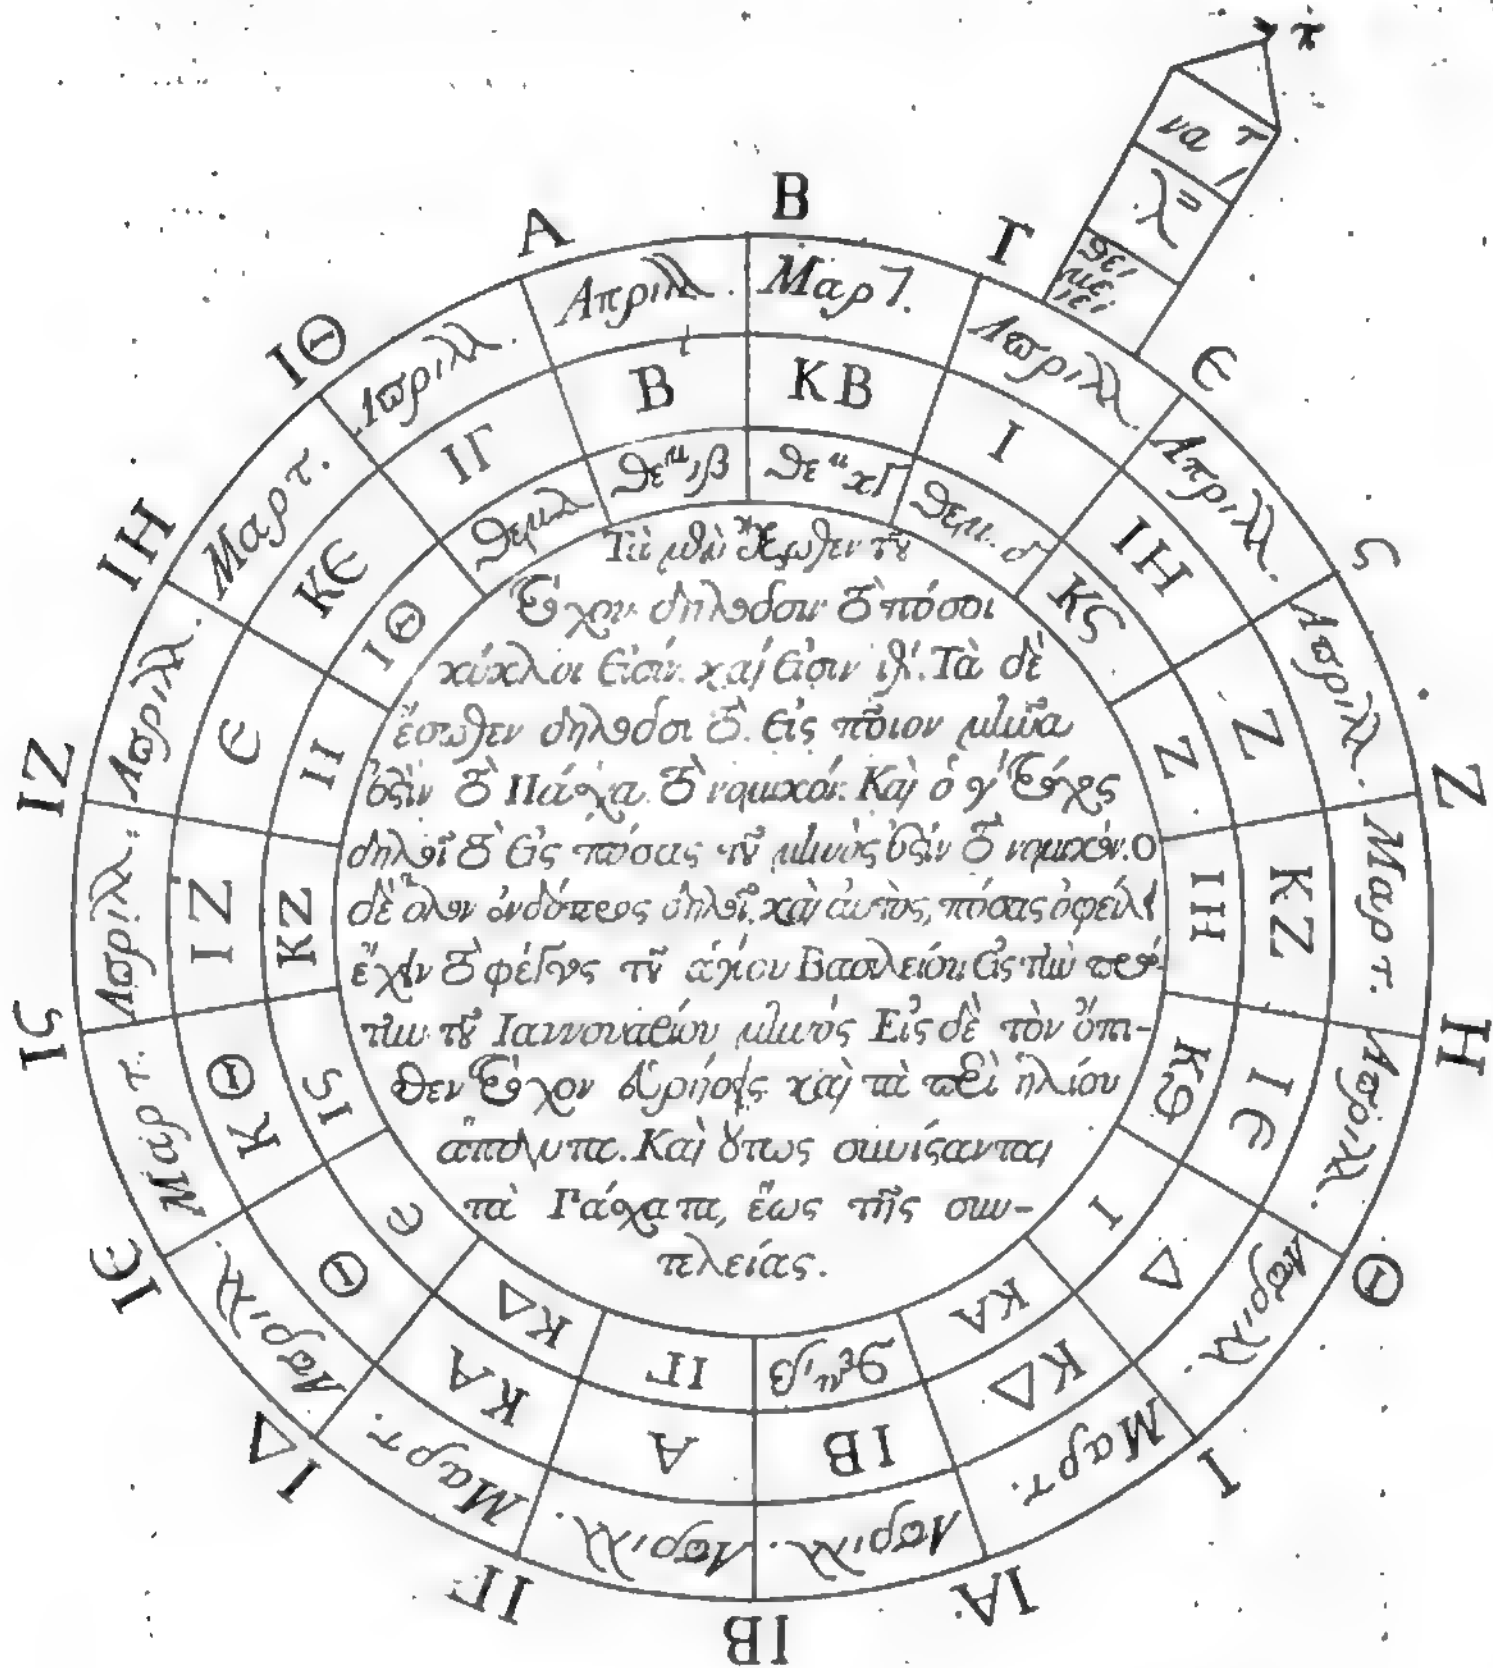 Α
Β
Γ
Є
Ϛ
Ζ
Η
Θ
Ι
ΙΑ
ΙΒ
ΙΓ
ΙΔ
ΙЄ
ΙϚ
ΙΖ
ΙΗ
ΙΘ
να τ
λ
θεμέλιοι
Απριλλ.
Μαρτ.
Απριλλ.
Απριλλ.
Απριλλ.
Μαρτ.
Απριλλ.
Απριλλ.
Μαρτ.
Απριλλ.
Απριλλ.
Μαρτ.
Απριλλ.
Μαρτ.
Απριλλ.
Απριλλ.
Μαρτ.
Απριλλ.
Β
ΚΒ
Ι
ΙΗ
Ζ
ΚΖ
ΙЄ
Δ
ΚΔ
ΙΒ
Α
ΚΑ
Θ
ΚΘ
ΙΖ
Є
ΚЄ
ΙΓ
θεμ ιβ
θεμ κΓ
θεμ. δ
ΚϚ
Ζ
ΙΗ
Ι
ΚΑ
θεμ ιβ
ΙΓ
ΚΔ
Є
ΙϚ
ΚΖ
ΙΘ
Τὰ μὲν ἔξωθεν τοῦ
τρόχου δηλοῦσι τὸ πόσοι
κύκλοι εἰσίν. καὶ εἰσιν ιθ΄. Τὰ δὲ
ἔσωθεν δηλοῦσι τὸ. εἰς ποῖον μῆνα
ἐστὶν τὸ Πάσχα. τὸ νομικόν. Καὶ ὁ γ΄ τρόχος
δηλοῖ τὸ εἰς πόσας τοῦ μηνός ἐστίν τὸ νομικόν. ο
δὲ ὅλον ἐνδότερος δηλοῖ, καὶ αὐτὸς, πόσας ὀφείλει
ἔχειν τὸ φέγγος τοῦ ἁγίου Βασιλείου εἰς τὴν πρώ-
την τοῦ Ιαννουαρίου μηνός Εἰς δὲ τὸν ὄπι-
θεν τρόχον εὑρήσεις καὶ τὰ περὶ ἡλίου
ἅπαντα. Καὶ οὕτως συνίστανται
τὰ Πάσχατα, ἕως τῆς συν-
τελείας.